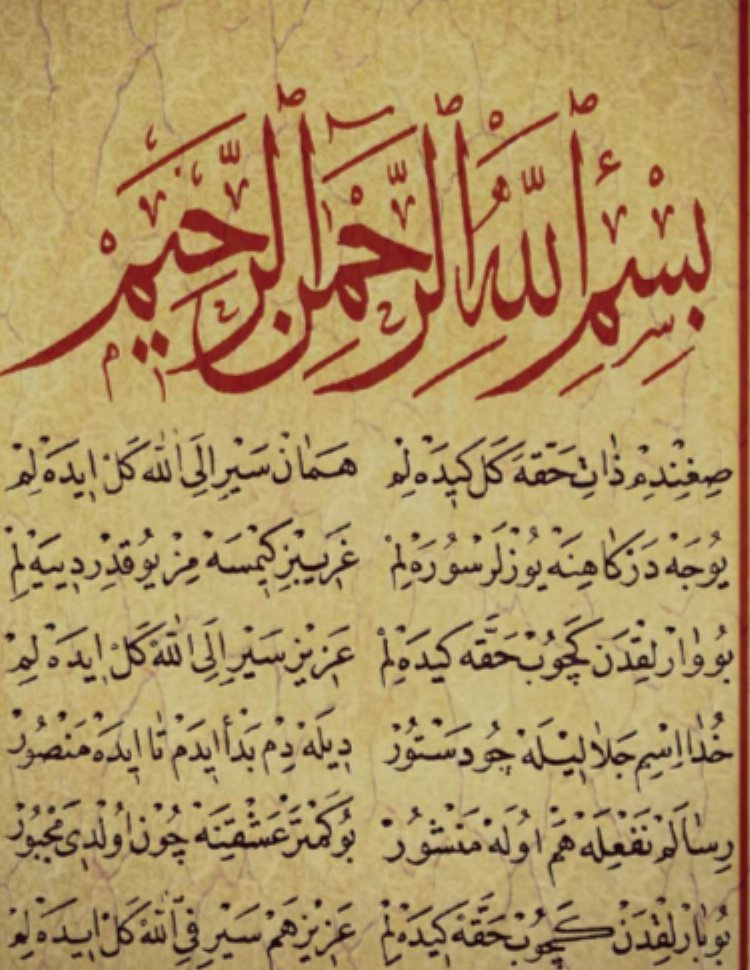 بِسْمِ اللّٰهِ الرَّحْمٰنِ الرَّحِيمِ
صِغِنْدِمْ ذَاتِ حَقَّهَ كَلْ كِيدَهْ لِمْ هَمَانْ سَيْرِ اِلَى اللّٰه كَلْ اِيدَهْ لِمْ
يُوجَهْ دَرْكَاهِنَهْ يُوزْلَرْ سُورَهْ لِمْ غَرِيبِزْ كِيمْسَهْ مِزْ يُوقْدِرْ دِيَيهْ لِمْ
بُو وَارْلِقْدَن كَچُوبْ حَقَّه كِيدَهْ لِمْ عَزِيزِ سَيْرِ اِلَى اللّٰهْ كَلْ اِيدَهْ لِمْ
خُدَا اِسْمِ جَلَالِيلَهْ جُو دَسْتُورْ دِيلَهْ دِمْ بَدْأ اِيدَمْ تَا اِيدَهْ مَنْصُورْ
رِسَالَمْ نَفْعِلَهْ هَمْ اوُلَهْ مَنْشُورْ بُو كَمْتَرْ عَشْقِنَهْ چُونْ اوُلْدِى مَجْبُورْ
بُو بَارْلِقْدَنْ كَچُوبْ حَقَّهَ كِيدَهْ لِمْ عَزِيزِ هَمْ سَيْرِ فِى اللّٰهْ كَلْ اِيدَهْ لِمْ